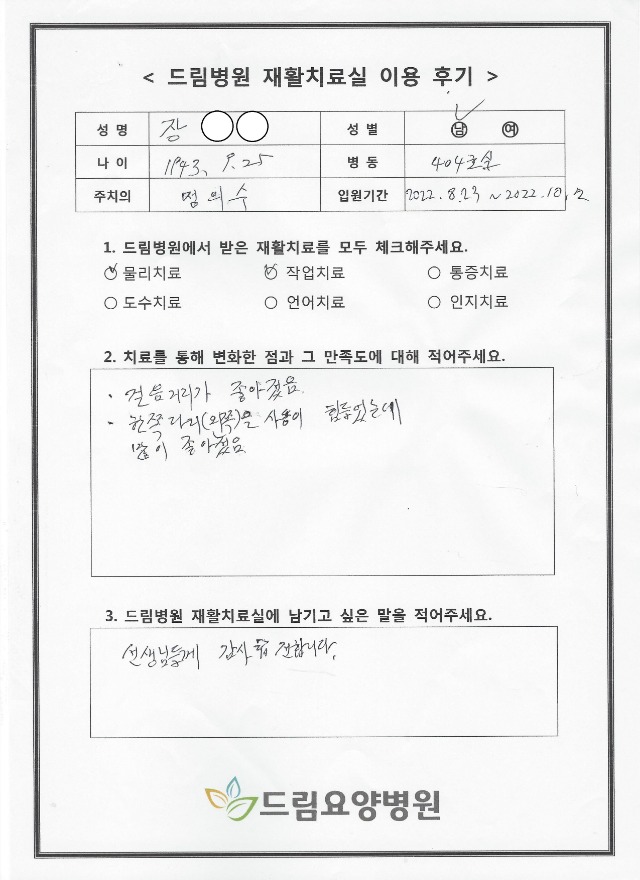 < 드림병원 재활치료실 이용 후기 >
성 명 장 ○○ 성 별 남 여
나 이 1943. 9. 25 병 동 404호실
주치의 의수 입원기간 2022. 8. 23 ~ 2022. 10.
1. 드림병원에서 받은 재활치료를 모두 체크해주세요.
물리치료 작업치료 통증치료
도수치료 언어치료 인지치료
2. 치료를 통해 변화한 점과 그 만족도에 대해 적어주세요.
· 걸음거리가 좋아졌음
· 한쪽다리(왼쪽)을 사용이 힘들었는데
많이 좋아졌음
3. 드림병원 재활치료실에 남기고 싶은 말을 적어주세요.
선생님들께 감사 전합니다.
드림요양병원